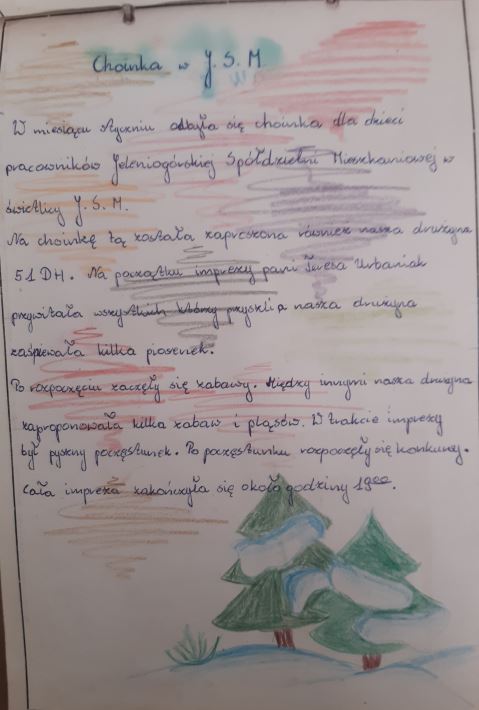 Choinka w J. S. M.
W miesiącu styczniu odbyła się choinka dla dzieci
pracowników Jeleniogórskiej Spółdzielni Mieszkaniowej w
świetlicy J. S. M.
Na choinkę tą została zaproszona również nasza drużyna
51 DH. Na początku imprezy pani Teresa Urbaniak
przywitała wszystkich którzy przyszli a nasza drużyna
zaśpiewała kilka piosenek.
Po rozpoczęciu zaczęły się zabawy. Między innymi nasza drużyna
zaproponowała kilka zabaw i pląsów. W trakcie imprezy
był pyszny poczęstunek. Po poczęstunku rozpoczęły się konkursy.
Cała impreza zakończyła się około godziny 19⁰⁰.